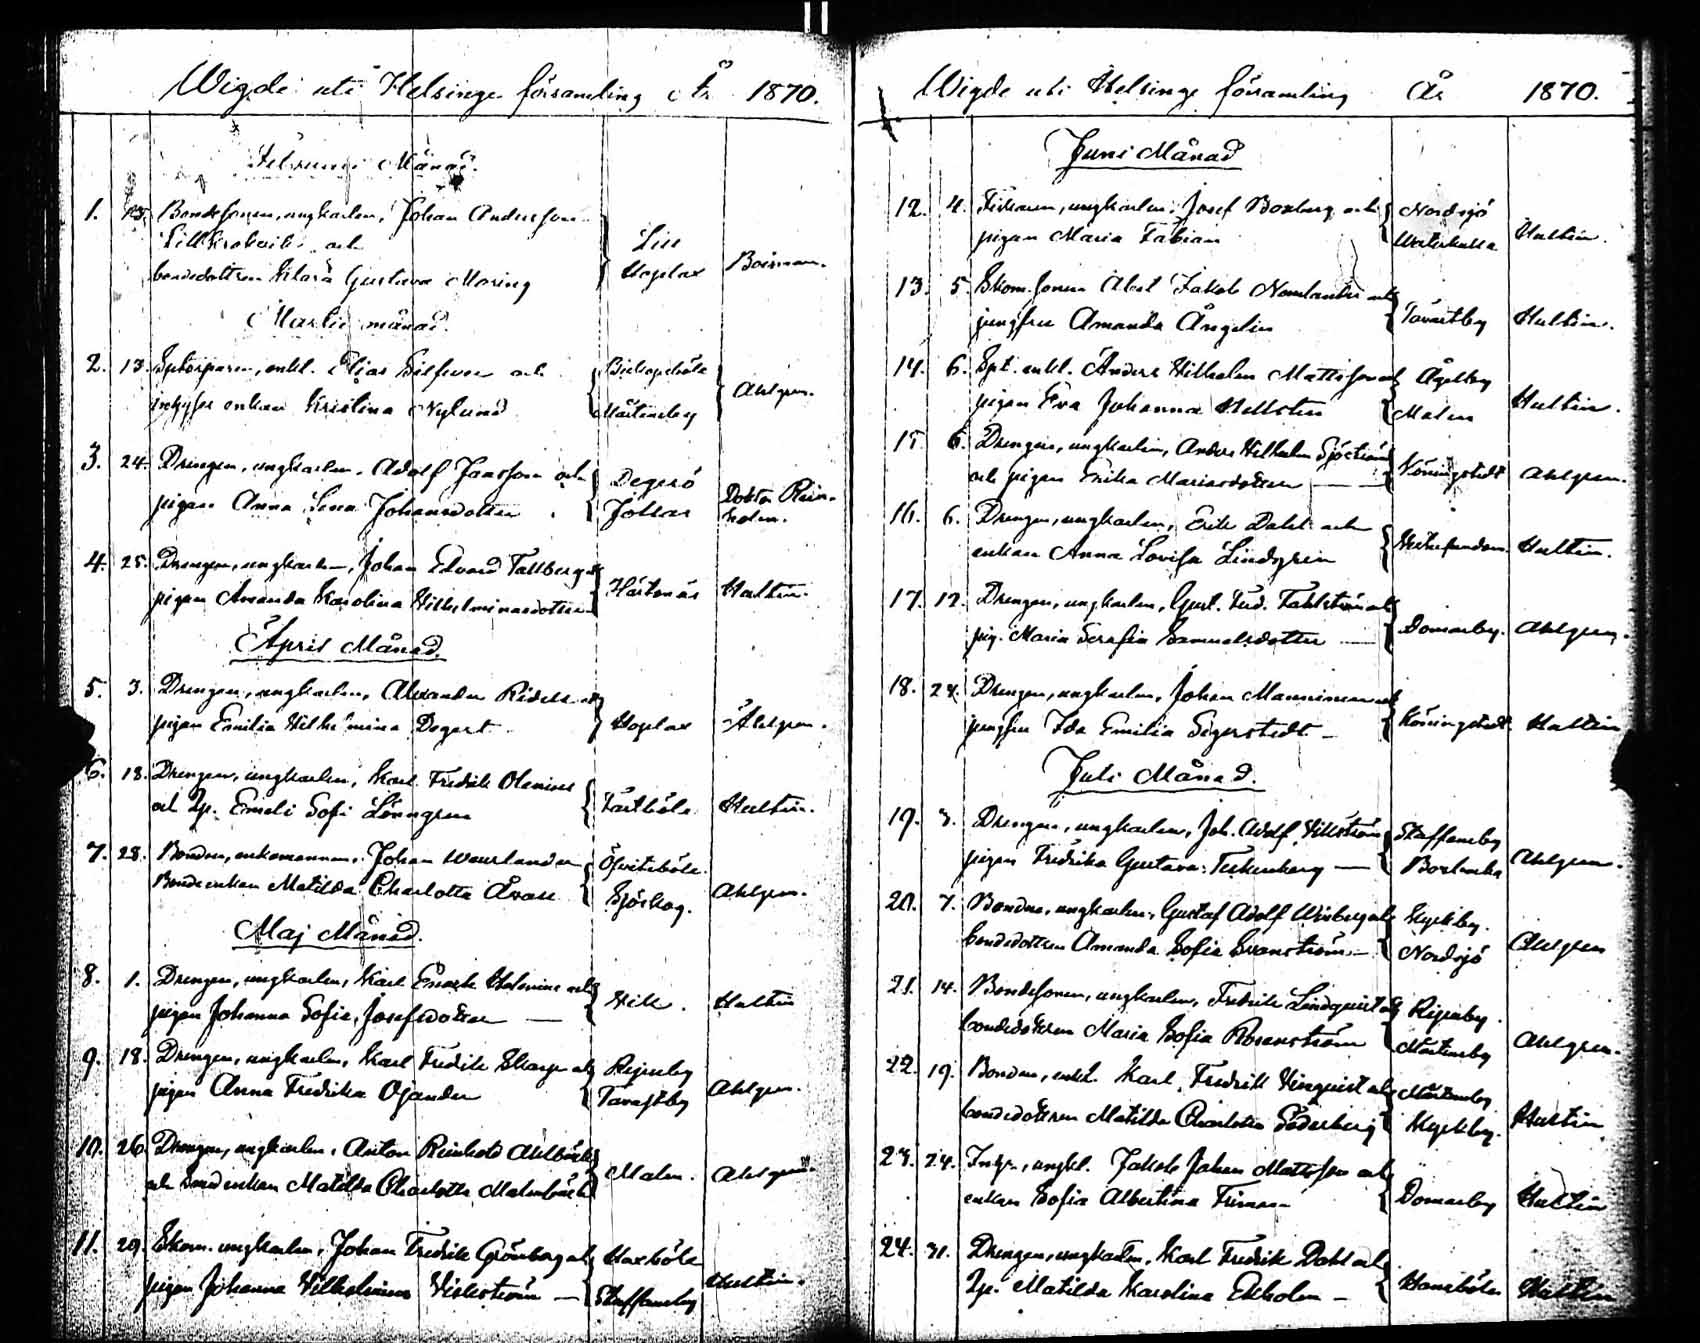 Wigde uti Helsinge församling År 1870.
Februari Månad.
1. 13. Bondesonen, ungkarlen, Johan Andersson
och Lill
bondedottren Klara Gustava Moring Hoplax Boisman.
Martii månad.
2. 13. enkl. Elias och Biskopsböle
enkan Kristina Nylund Mårtensby Ahlgren.
3. 24. Drengen, ungkarlen, Adolf Jansson och Degerö
pigan Anna Lena Johansdotter Jollas Doktor Rein-
holm.
4. 25. Drengen, ungkarlen, Johan Edvard Tallberg och
pigan Amanda Karolina Wilhelminasdotter Hertonäs Hultin.
April Månad.
5. 3. Drengen, ungkarlen, Alexander och
pigan Emilia Wilhelmina Degert Hoplax Ahlgren.
6. 18. Drengen, ungkarlen, Karl Fredrik Olenius
och Emeli Sofi Lönngren Fastböle Hultin.
7. 28. Bonden, enkomannen, Johan Weurlander Öfvitsböle
Bondeenkan Matilda Charlotta Sjöskog. Ahlgren.
Maj Månad.
8. 1. Drengen, ungkarlen, Karl Enock Helenius och
pigan Johanna Sofia Josefsdotter — Wik. Hultin
9. 18. Drengen, ungkarlen, Karl Fredrik och Ripuby
pigan Anna Fredrika Ojander Tavastby Ahlgren.
10. 26. Drengen, ungkarlen, Anton Reinhold Ahlbäck
och enkan Matilda Charlotta Malmbäck Malm. Ahlgren.
11. 29. Skom. ungkarlen, Johan Fredrik Grönberg och Haxböle
pigan Johanna Vilhelmina Vikström — Staffansby Hultin.
Wigde uti Helsinge församling År 1870.
Juni Månad
12. 4. Fiskaren, ungkarlen, Josef Boxberg och Nordsjö
pigan Maria Fabian Westerkulla Hultin.
13. 5. Skom. sonen Abel Jakob och
jungfru Amanda Ångelin Tavastby Hultin.
14. 6. enkl. Anders Wilhelm Mattsson och Ågelby
pigan Eva Johanna Hellsten Malm Hultin.
15. 6. Drengen, ungkarlen, Anders Wilhelm Sjöström
och pigan Erika Mariasdotter — Köningstedt Ahlgren.
16. 6. Drengen, ungkarlen, Erik Dahl och
enkan Anna Lovisa Lindgren Westersundom. Hultin.
17. 12. Drengen, ungkarlen, Gust. Ferd. Fahlström och
pig. Maria Serafia Samuelsdotter — Domarby. Ahlgren.
18. 24. Drengen, ungkarlen, Johan Manninen och
jungfru Ida Emilia Segerstedt — Köningstedt Hultin
Juli Månad.
19. 3. Drengen, ungkarlen, Joh. Adolf Vikström Staffansby
pigan Fredrika Gustava Teckenberg — Ahlgren.
20. 7. Bonden, ungkarlen, Gustaf Adolf och Kyrkby.
bondedottren Amanda Sofia Svanström — Nordsjö Ahlgren
21. 14. Bondesonen, ungkarlen, Fredrik Lindqvist och Ripuby.
bondedottren Maria Sofia Rosenström Mårtensby Ahlgren.
22. 19. Bonden, enkl. Karl Fredrik och Mårtensby
bondedottren Matilda Charlotta Söderberg Kyrkby. Hultin
23. 24. Inhys., ungkl. Jakob Johan Mattsson och
enkan Sofia Albertina Friman Domarby Hultin
24. 31. Drengen, ungkarlen, Karl Fredrik Dahl och
Matilda Karolina Ekholm — Hanaböle Hultin